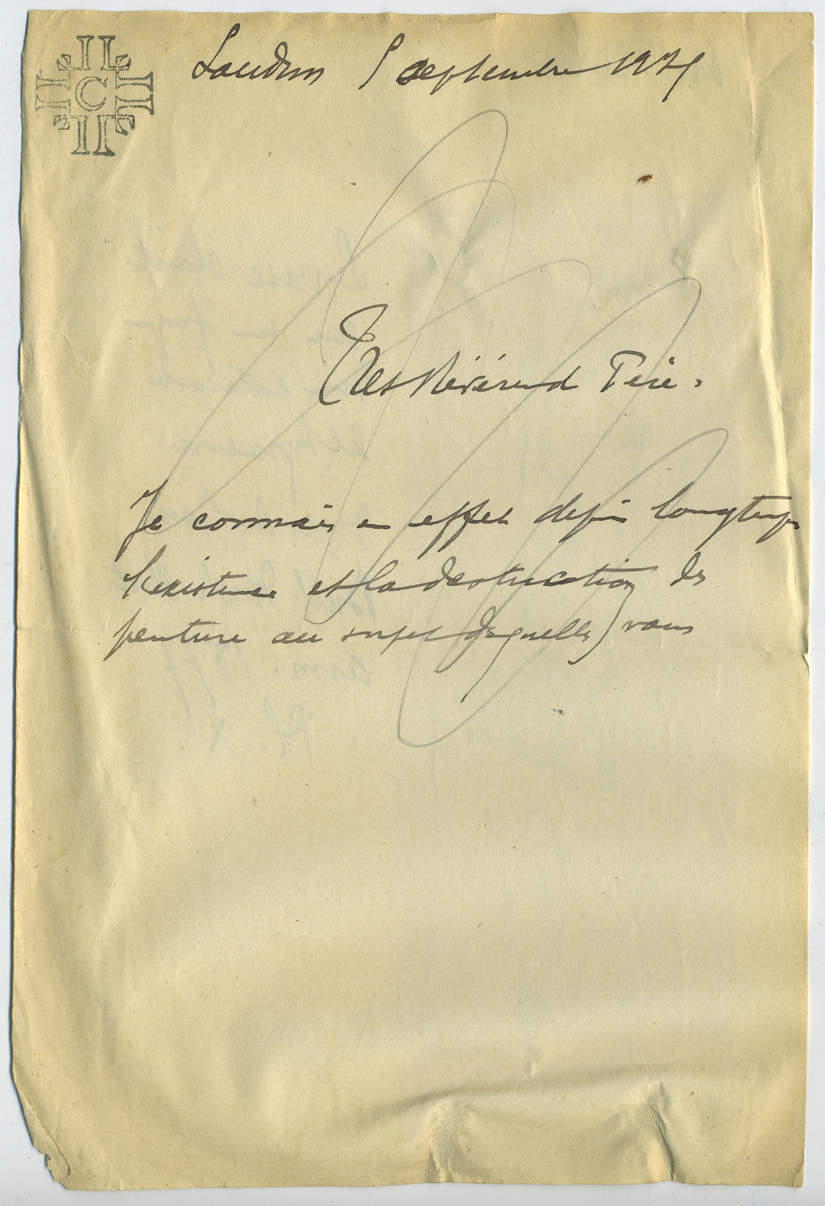 C
Loudun 5 septembre
Très Révérend Père,
Je connais en effet depuis longtemps
l'existence et la destruction des
peinture au sujet desquelles vous